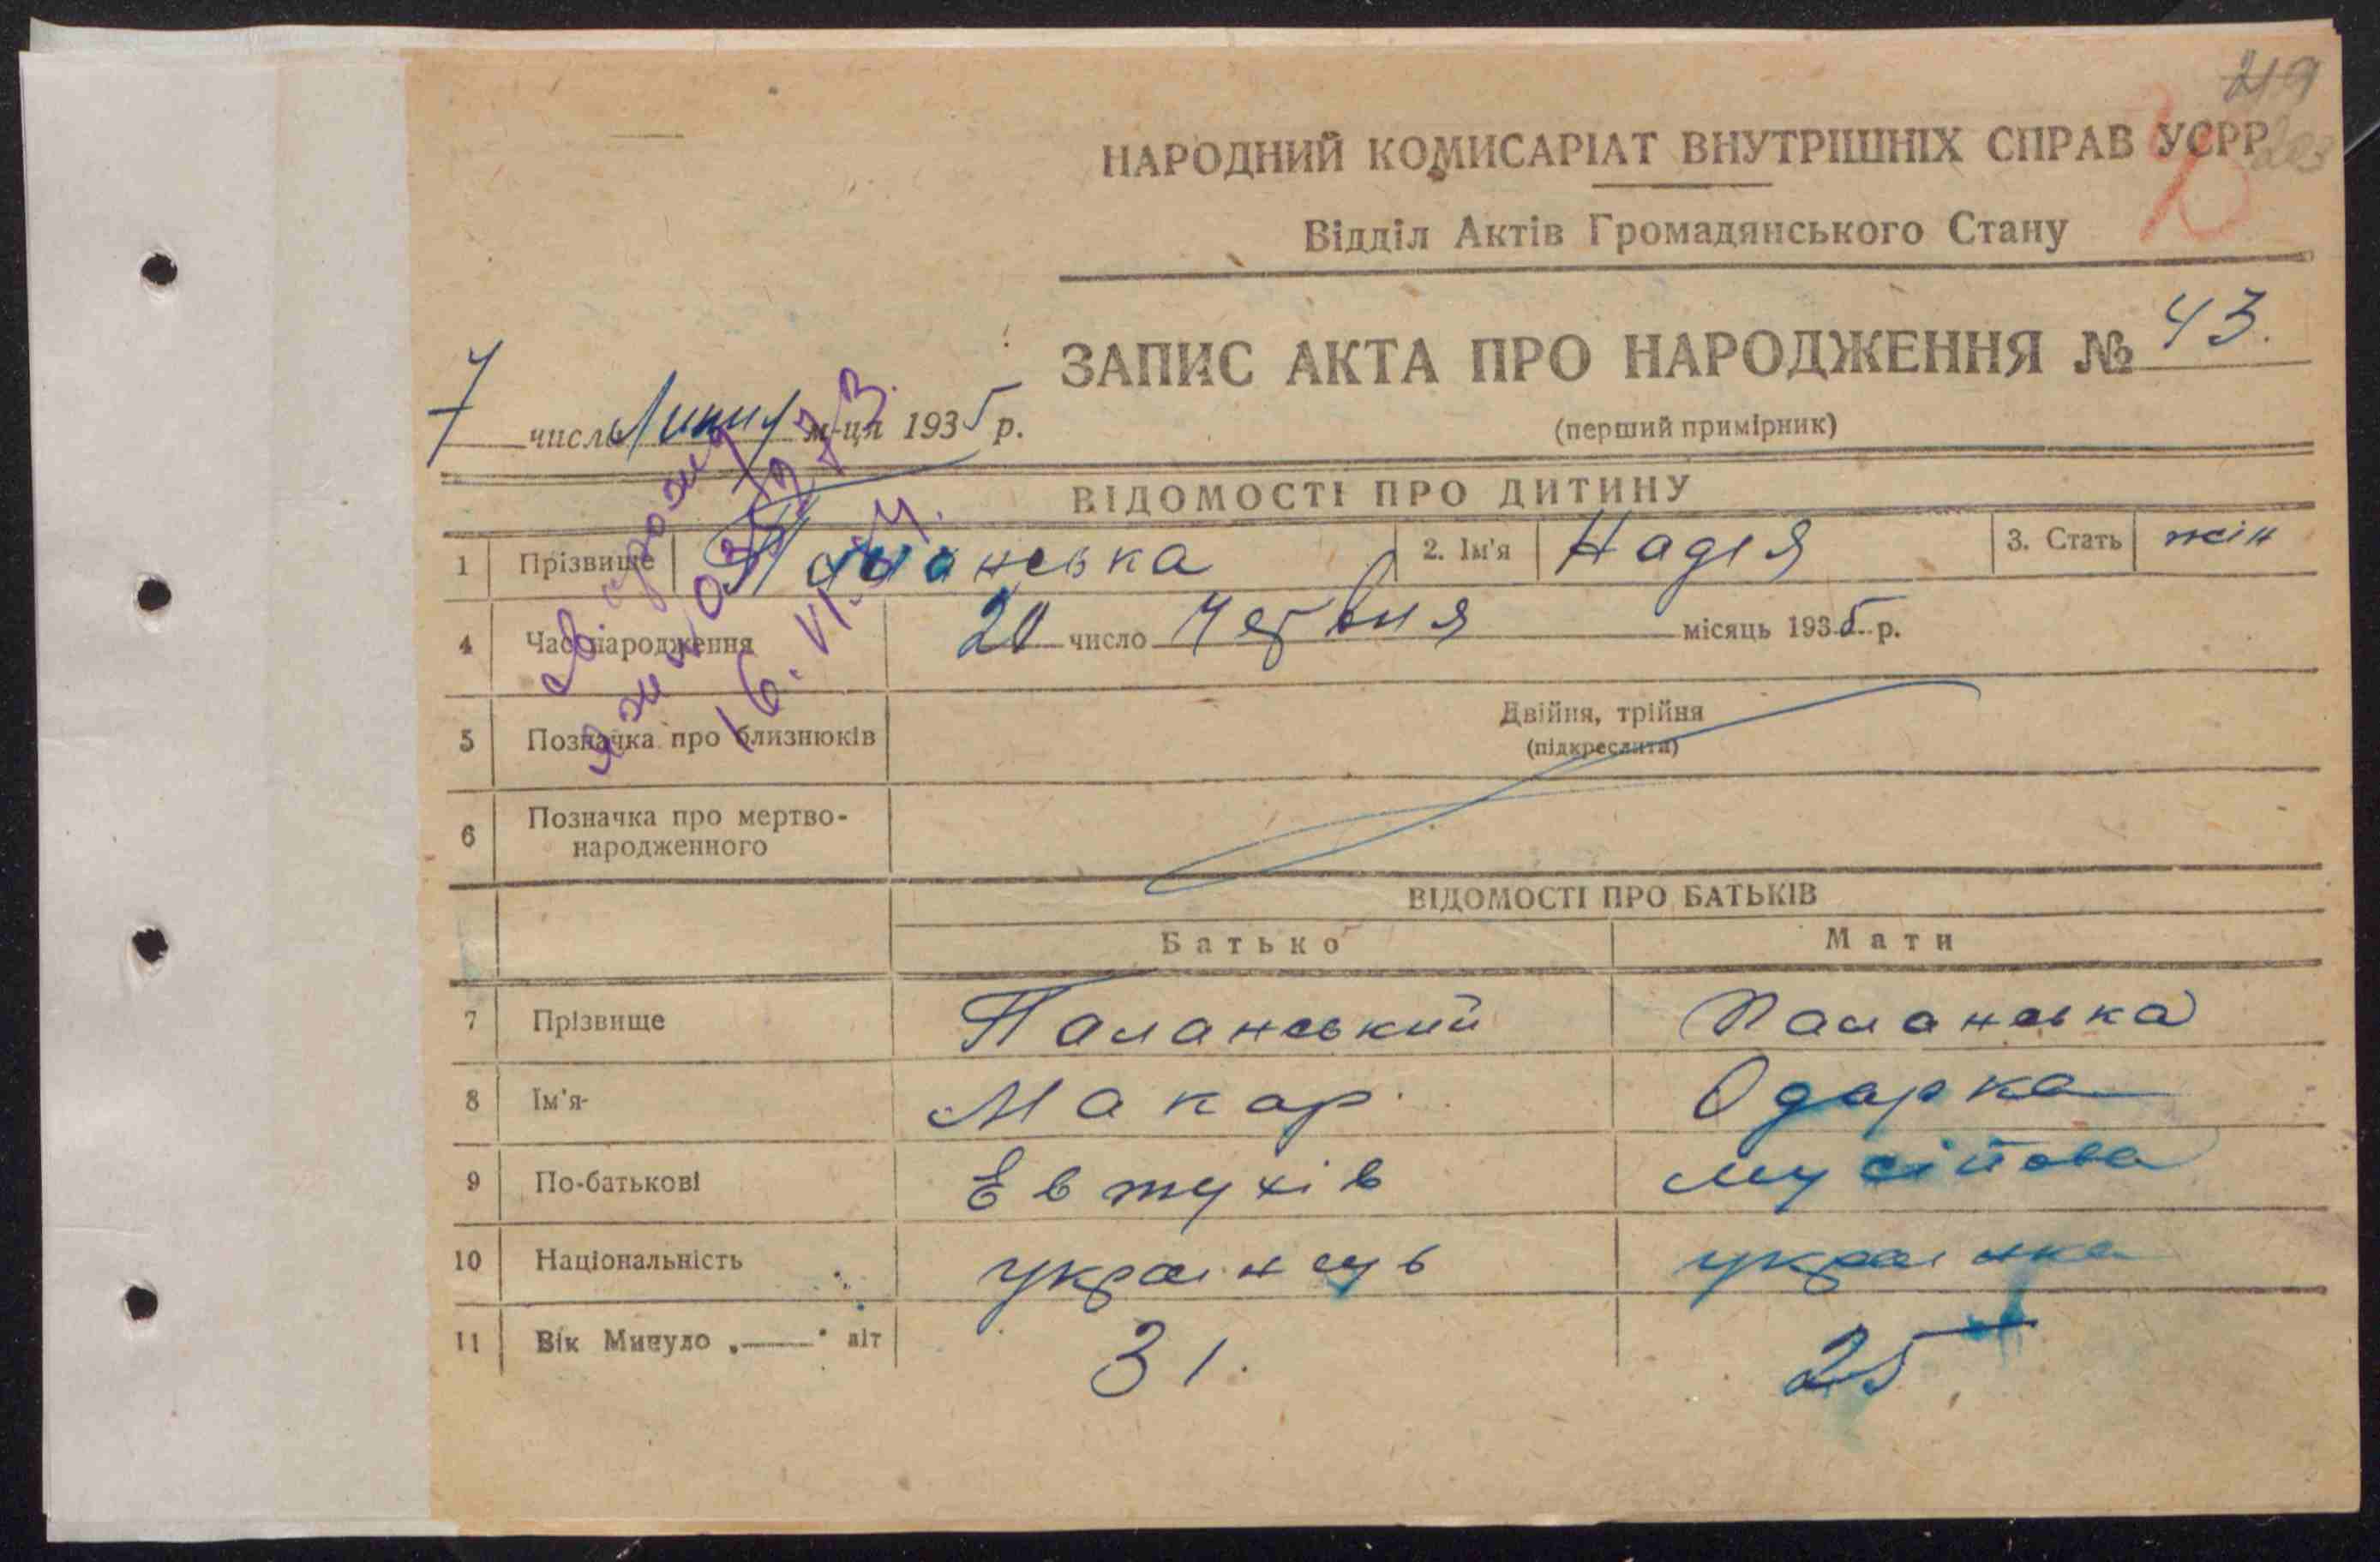 219
203
НАРОДНИЙ КОМИСАРІАТ ВНУТРІШНІХ СПРАВ УСРР
Відділ Актів Громадянського Стану
ЗАПИС АКТА ПРО НАРОДЖЕННЯ № 43.
(перший примірник)
7 числа Липня м-ця 1935 р.
ВІДОМОСТІ ПРО ДИТИНУ
1 Прізвище Паланська 2. Ім'я Надія 3. Стать жін
4 Час народження 20 число Червня місяць 1935 р.
5 Позначка про близнюків Двійня, трійня
(підкреслити)
6 Позначка про мертво-
народженного
16. VI.
ВІДОМОСТІ ПРО БАТЬКІВ
Батько Мати
7 Прізвище Паланський Паланська
8 Ім'я Макар Одарка
9 По-батькові Евтухів Мусійова
10 Національність українець українка
11 Вік Минуло „——" літ 31. 25